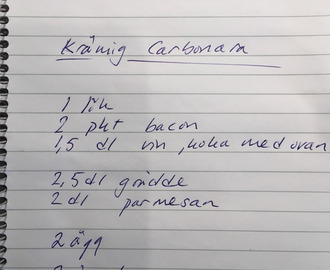 Krämig Carbonara
1 lök
2 pkt bacon
1,5 dl vin, koka med ovan
2,5 dl grädde
2 dl parmesan
2 ägg